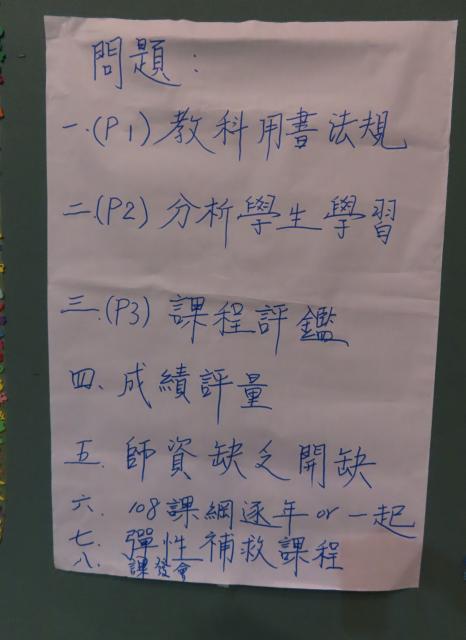 問題:
一.(P1)教科用書法規
二.(P2)分析學生學習
三.(P3)課程評鑑
四.成績評量
五.師資缺乏開缺
六.108課綱逐年or一起
七.彈性補救課程
八.課發會